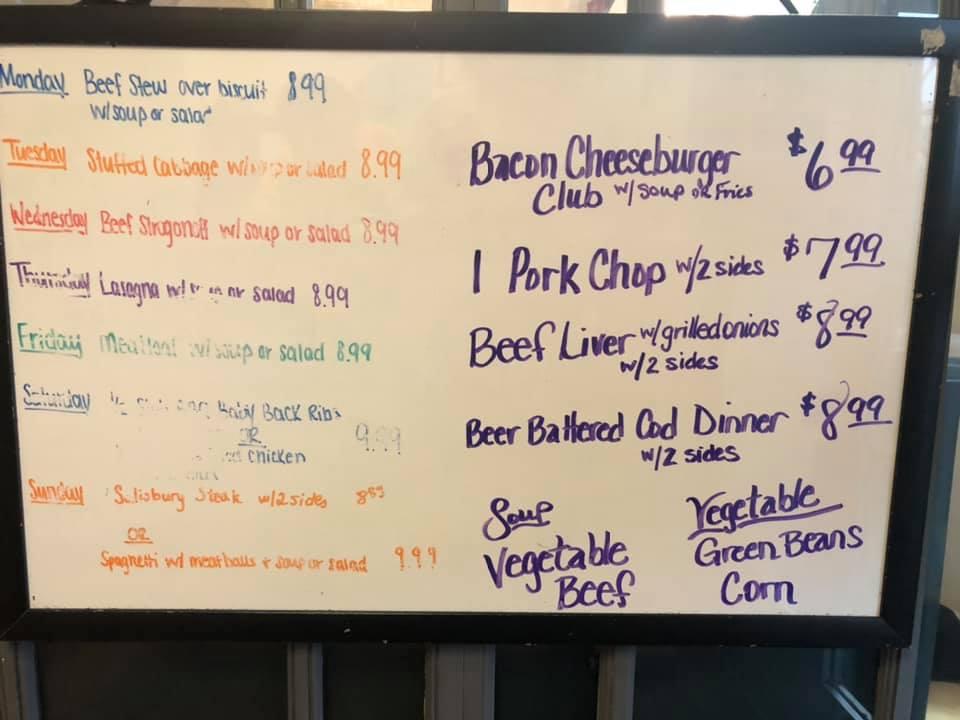 Monday Beef Stew over biscuit 8.99
w/soup or salad
Tuesday Stuffed Cabbage w/ or salad 8.99
Wednesday Beef Strogonoff w/ soup or salad 8.99
Thursday Lasagna w/ or salad 8.99
Friday Meatloaf w/soup or salad 8.99
Saturday Baby Back Ribs
OR
Chicken
9.99
Sunday Salisbury Steak w/2 sides 8.99
OR
Spaghetti w/ meatballs + soup or salad 9.99
Bacon Cheeseburger $6.99
Club w/ soup or Fries
1 Pork Chop w/2 sides $7.99
Beef Liver w/grilled onions $8.99
w/2 sides
Beer Battered Cod Dinner $8.99
w/2 sides
Soup
Vegetable
Beef
Vegetable
Green Beans
Corn